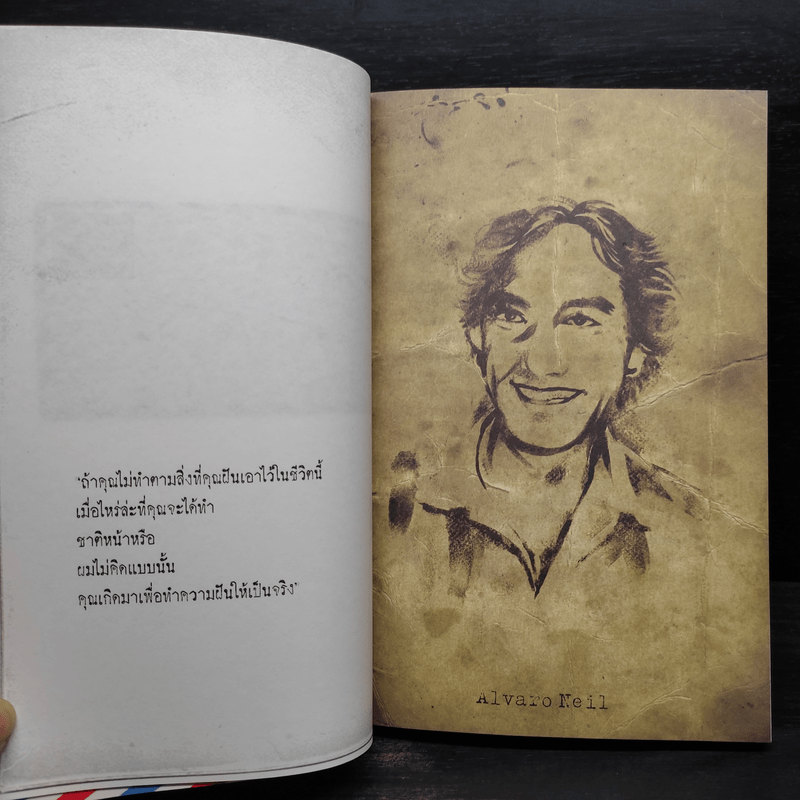 “ถ้าคุณไม่ทำตามสิ่งที่คุณฝันเอาไว้ในชีวิตนี้
เมื่อไหร่ล่ะที่คุณจะได้ทำ
ชาติหน้าหรือ
ผมไม่คิดแบบนั้น
คุณเกิดมาเพื่อทำความฝันให้เป็นจริง”
Alvaro Neil